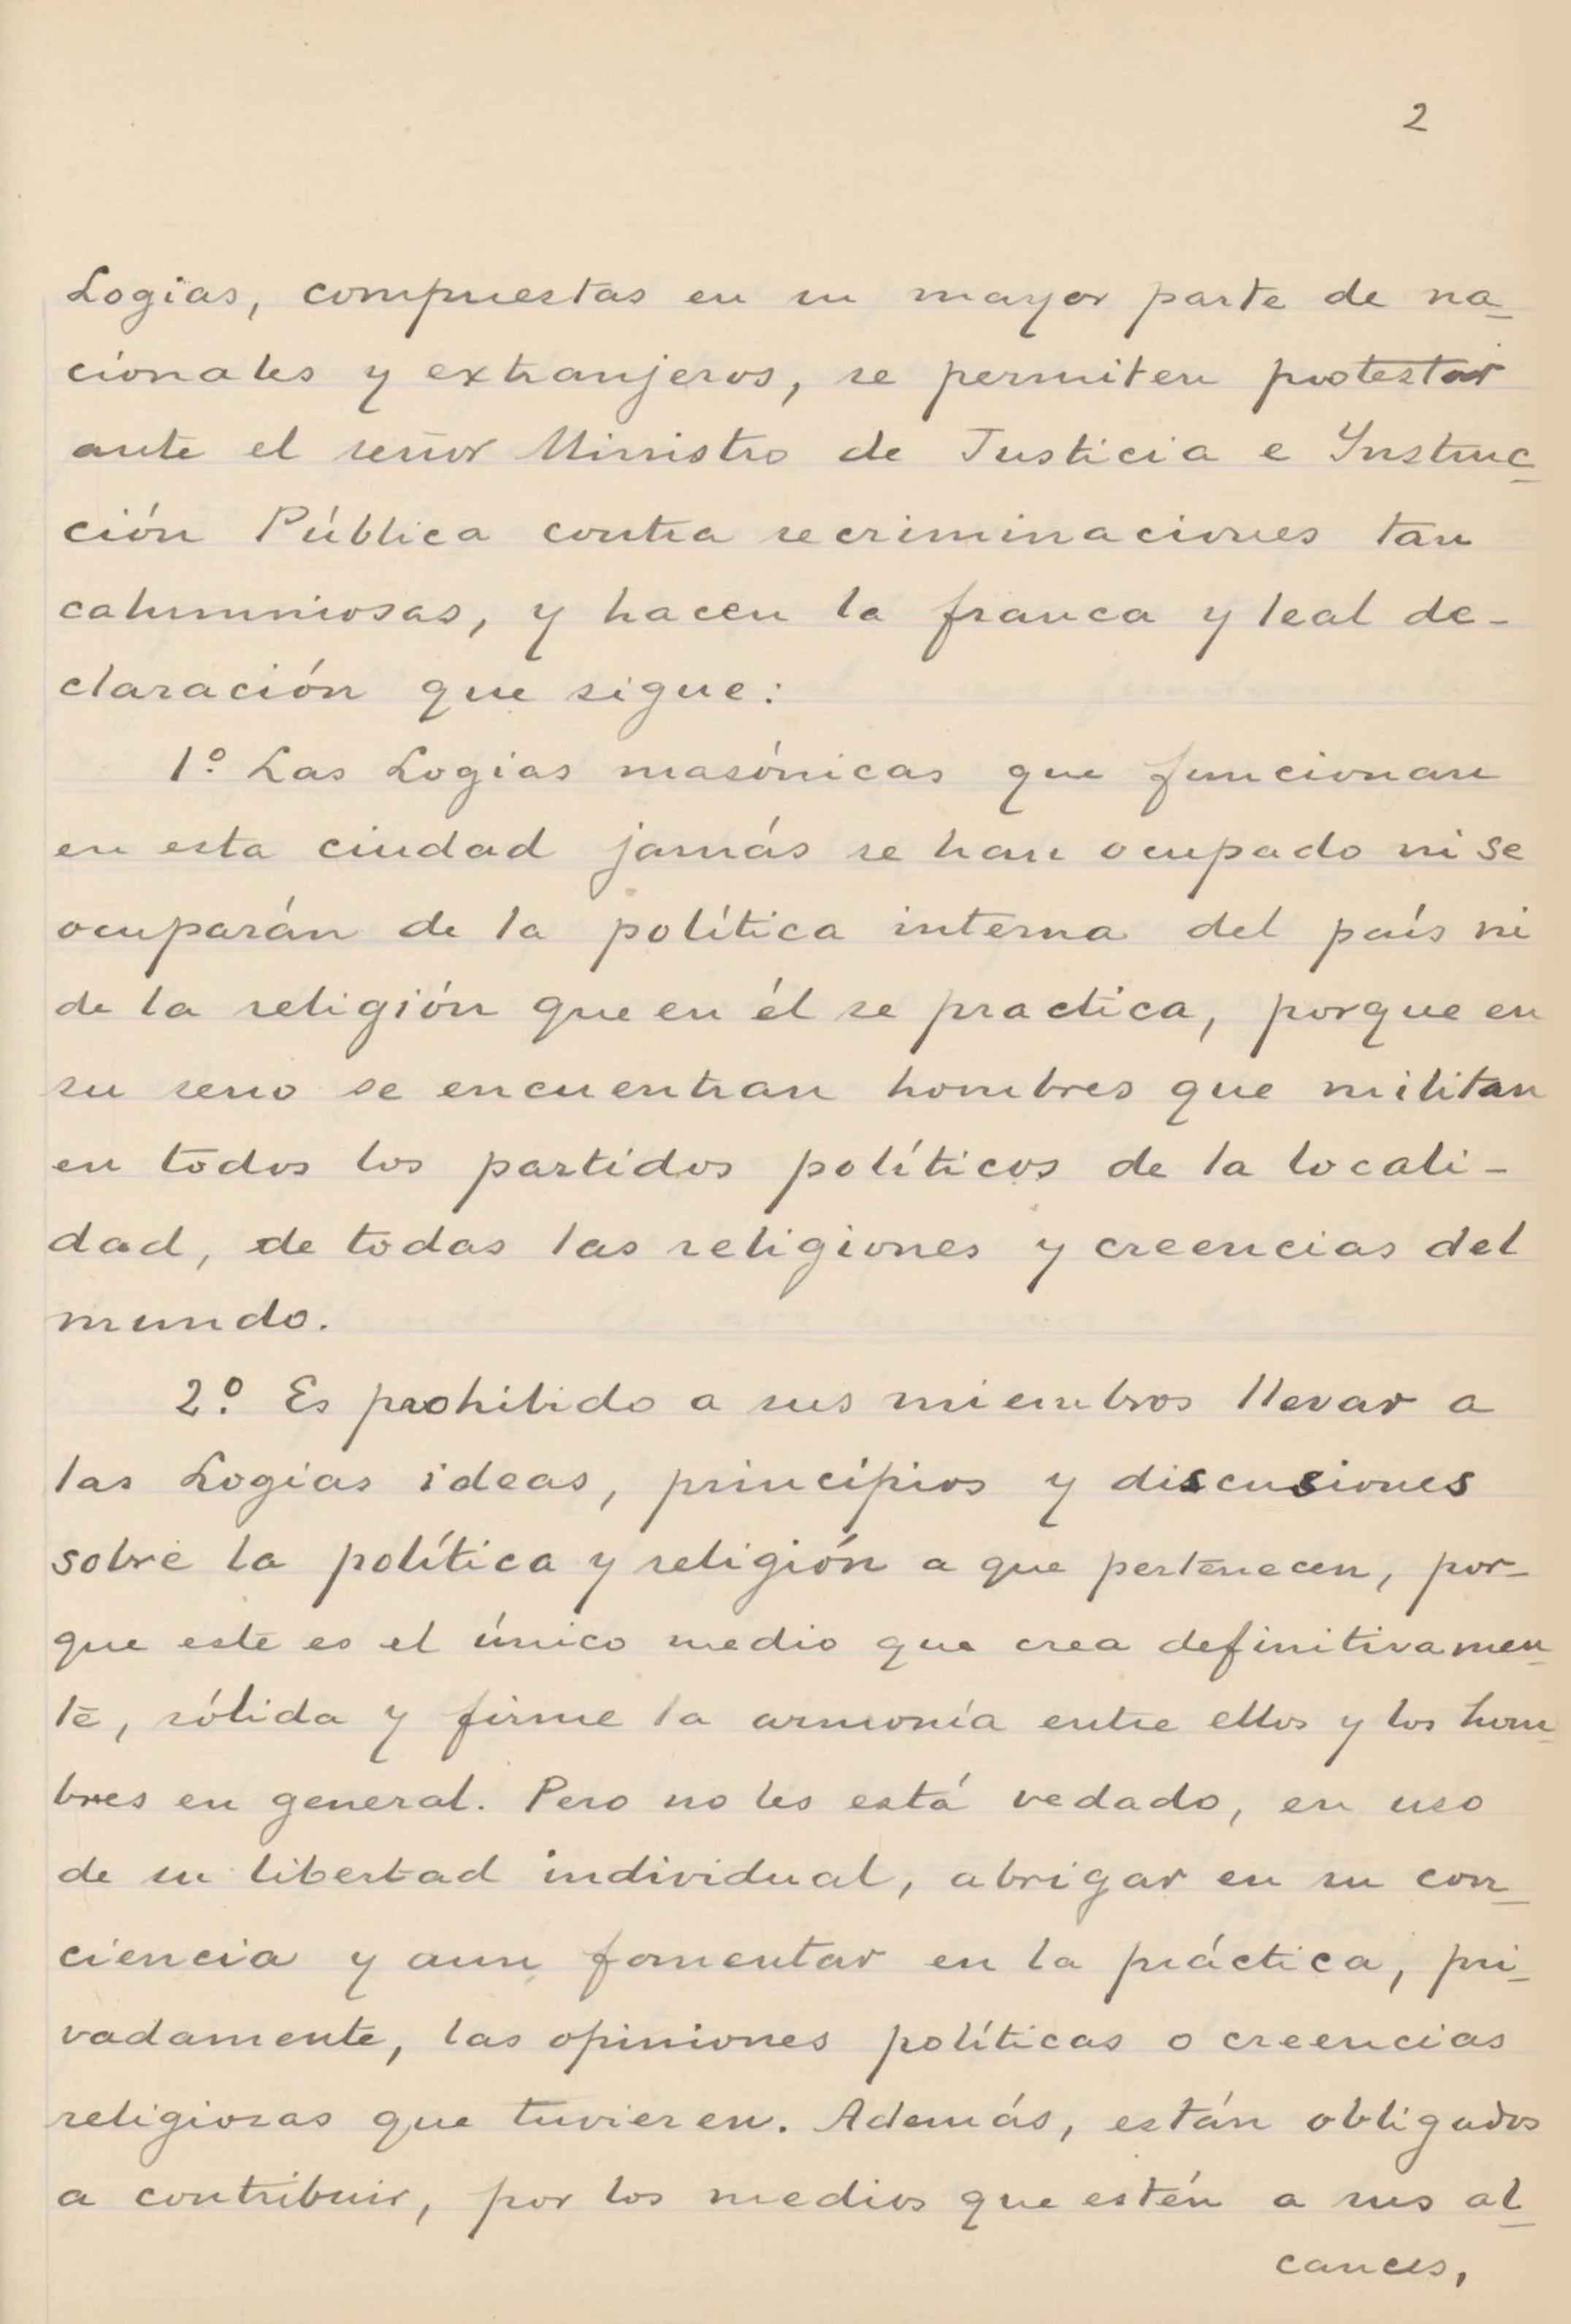 2
Logias, compuestas en su mayor parte de na-
cionales y extranjeros, se permiten protestar
ante el señor Ministro de Justicia e Instruc-
ción Pública contra recriminaciones tan
calumniosas, y hacen la franca y leal de-
claración que sigue:
1.º Las Logias masónicas que funcionan
en esta ciudad jamás se han ocupado ni se
ocuparán de la política interna del país ni
de la religión que en él se practica, porque en
su seno se encuentran hombres que militan
en todos los partidos políticos de la locali-
dad, de todas las religiones y creencias del
mundo.
2.º Es prohibido a sus miembros llevar a
las Logias ideas, principios y discusiones
sobre la política y religión a que pertenecen, por-
que este es el único medio que crea definitivamen-
te, sólida y firme la armonía entre ellos y los hom-
bres en general. Pero no les está vedado, en uso
de su libertad individual, abrigar en su con-
ciencia y aun fomentar en la práctica, pri-
vadamente, las opiniones políticas o creencias
religiosas que tuvieren. Además, están obligados
a contribuir, por los medios que estén a sus al-
cances,